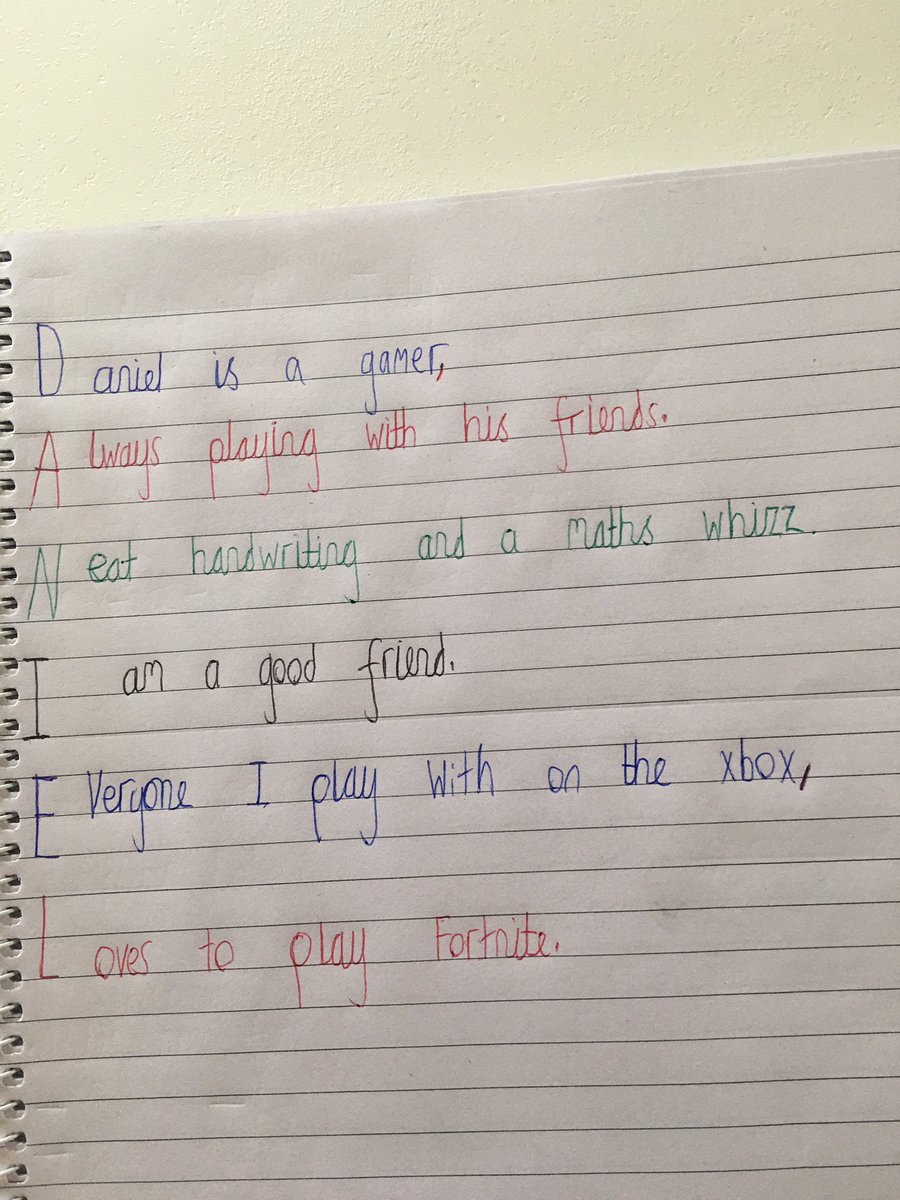 Daniel is a gamer,
Always playing with his friends.
Neat handwriting and a maths whizz.
I am a good friend.
Everyone I play with on the xbox,
Loves to play Fortnite.